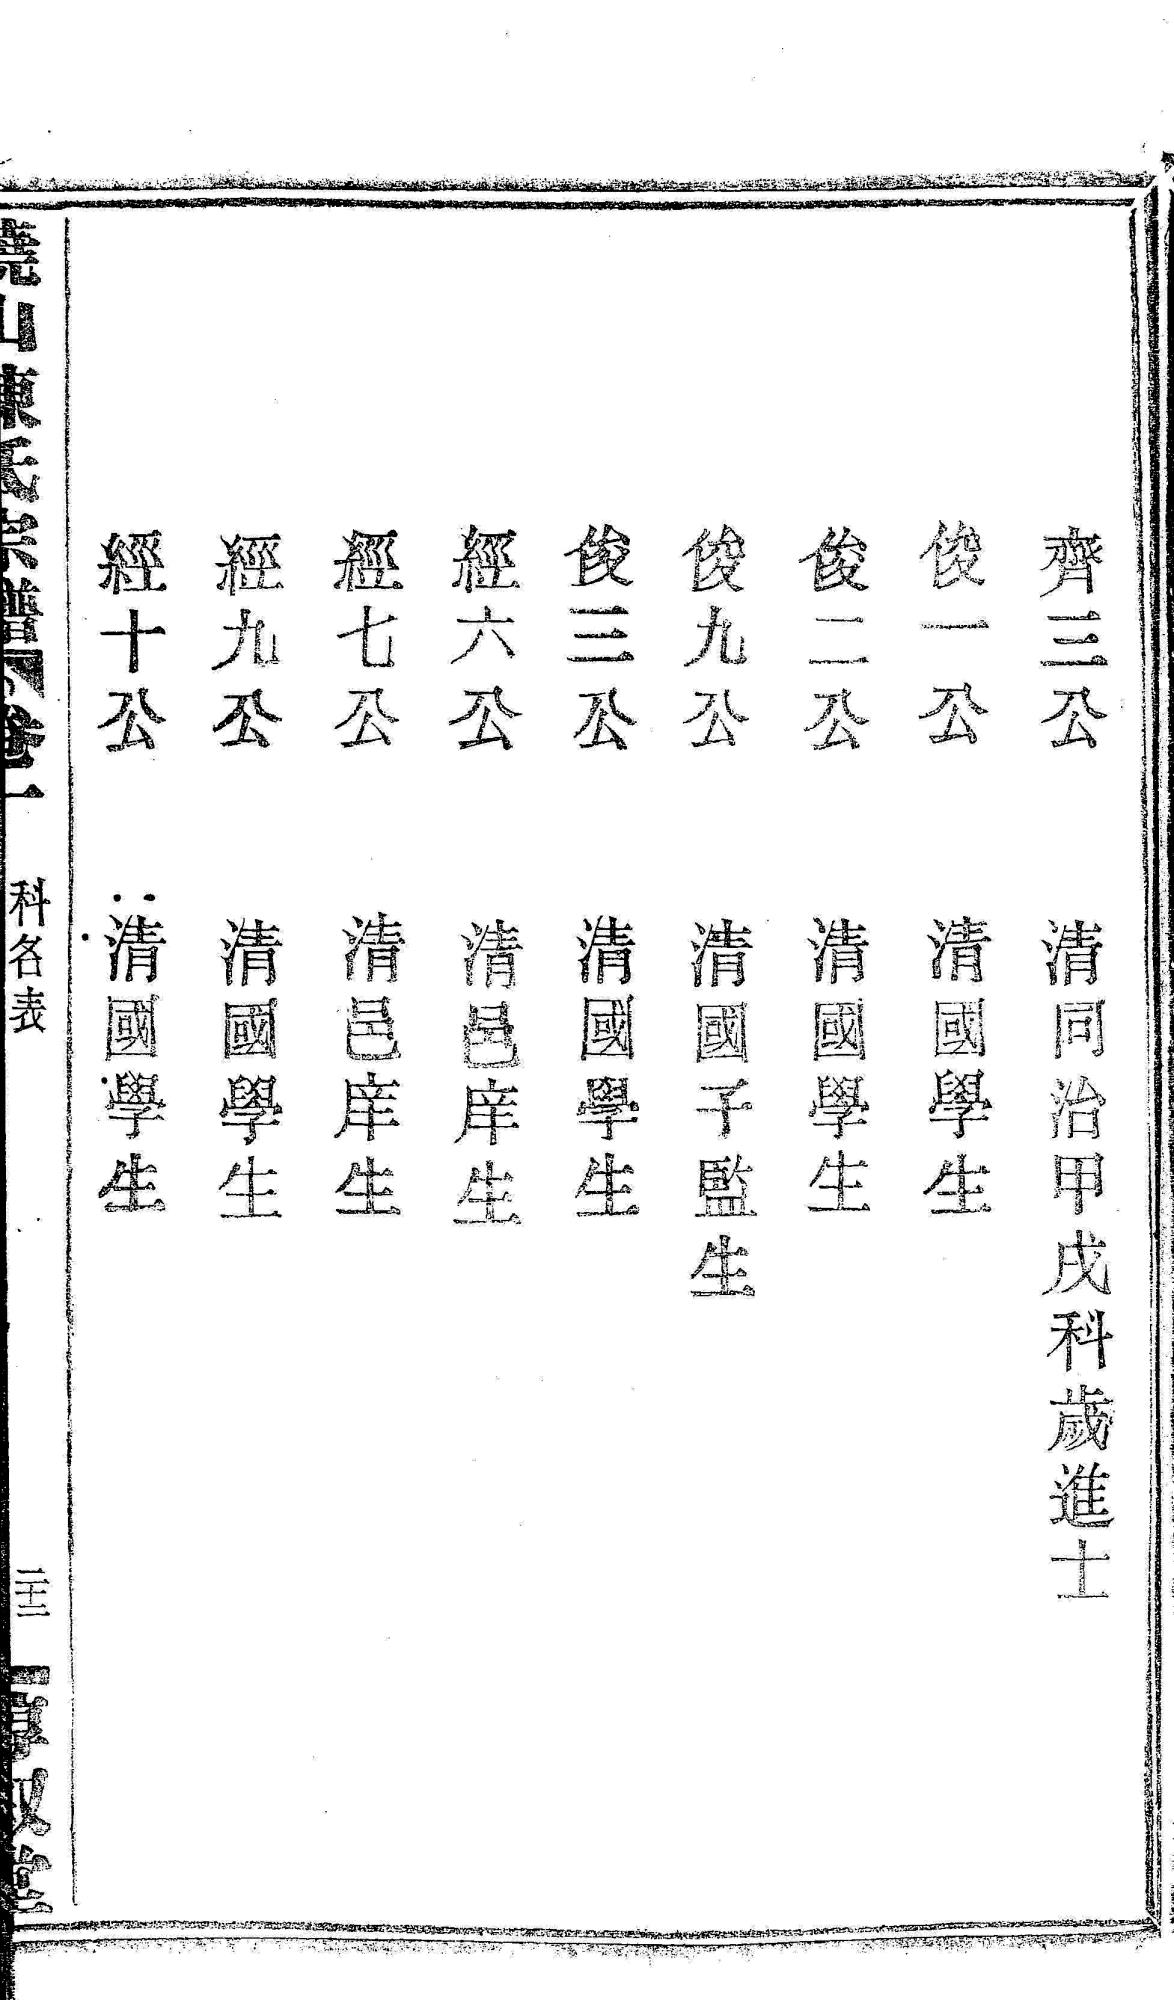 齊三公 清同治甲戌科歲進士
俊一公 清國學生
俊二公 清國學生
俊九公 清國子監生
俊三公 清國學生
經六公 清邑庠生
經七公 清邑庠生
經九公 清國學生
經十公 清國學生
山陳氏宗譜 卷一 科各表 二十二 敦叙堂